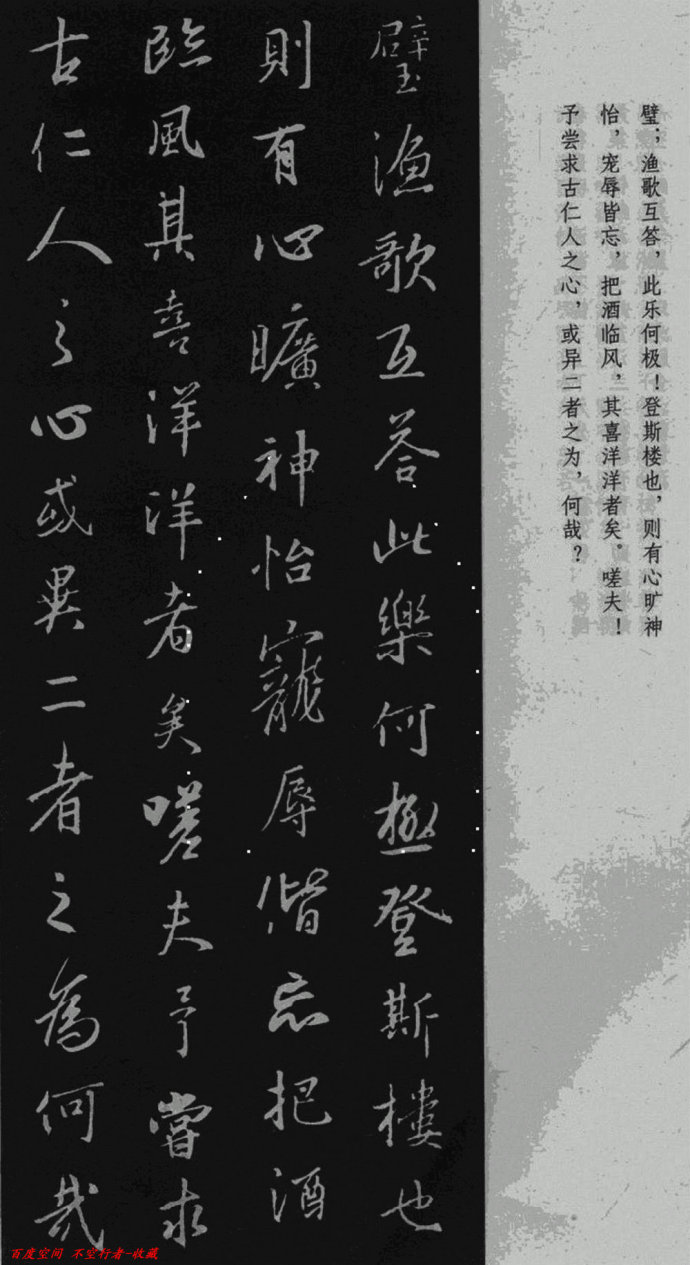 璧；渔歌互答，此乐何极！登斯楼也，则有心旷神
怡，宠辱皆忘，把酒临风，其喜洋洋者矣。嗟夫！
予尝求古仁人之心，或异二者之为，何哉？
璧渔歌互答此樂何極登斯樓也
則有心曠神怡寵辱偕忘把酒
臨風其喜洋洋者矣嗟夫予嘗求
古仁人之心或異二者之為何哉
百度空间 不空行者-收藏